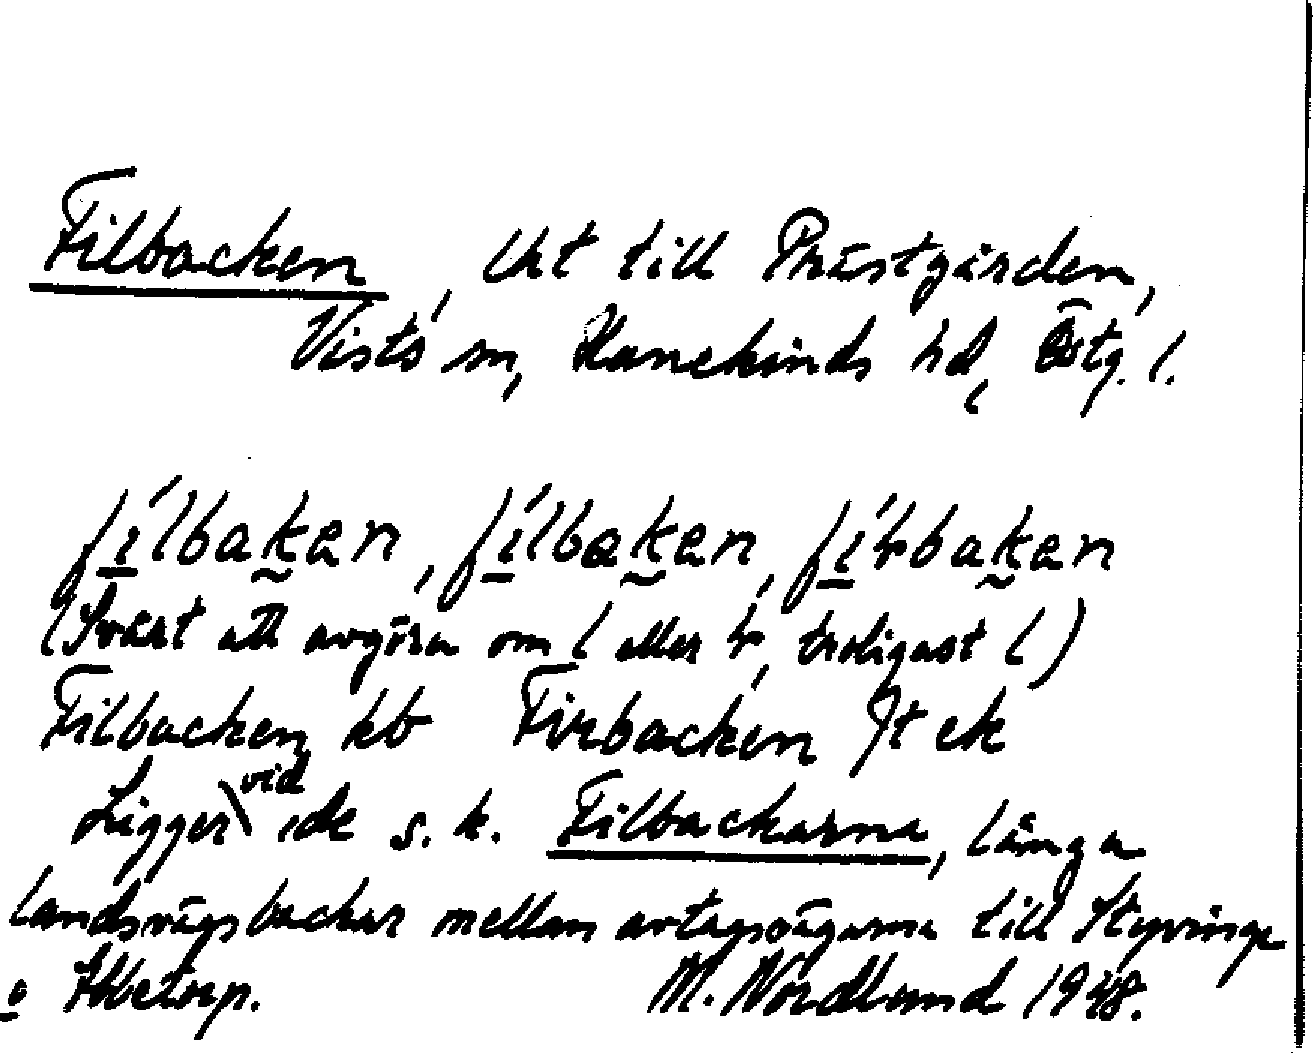 Filbacken, lht till Prästgården,
Vists sn, Hanekinds hd, Östg. l.
fìlbaken, fílbaken, fírbaken
(Svårt att avgöra om l eller r, troligast l)
Filbacken kb Firbacken Jt ek
Ligger vid de s. k. Filbackarna, långa
landsvägsbackar mellan avtagsvägarna till Styvinge
o Ebbetorp. M. Nordlund 1948.